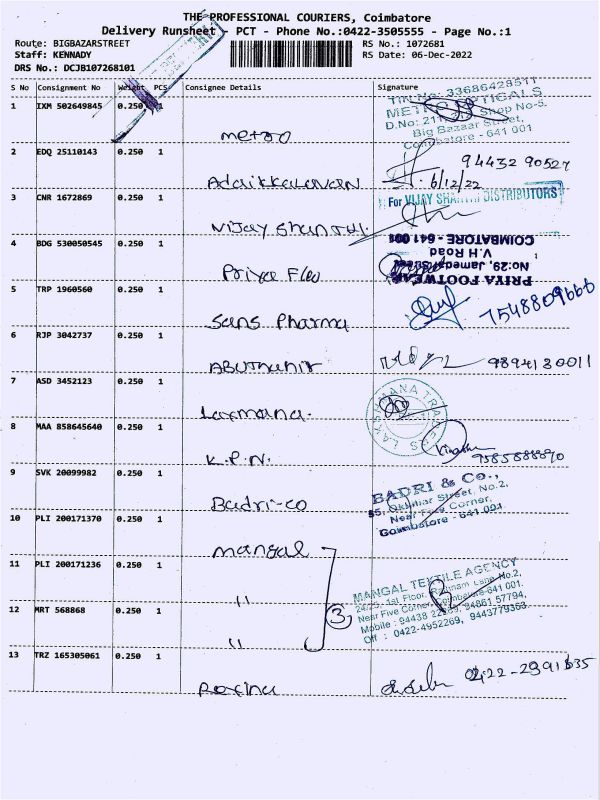 THE PROFESSIONAL COURIERS, Coimbatore
Delivery Runsheet - PCT - Phone No.:0422-3505555 - Page No.:1
Route: BIGBAZARSTREET
RS No.: 1072681
Staff: KENNADY
RS Date: 06-Dec-2022
DRS No.: DCJB107268101
S No Consignment No Weight PCS Consignee Details Signature
1 IXM 502649845 0.250 1 metro
TIN No: 33686428511
D.No: Shop No-5,
Big Bazaar Street,
Coimbatore - 641 001
2 EDQ 25110143 0.250 1 Adaikkalavan
94432 90527
6/12/22
3 CNR 1672869 0.250 1 Vijay Shanthi
For VIJAY SHANTHI DISTRIBUTORS
4 BDG 530050545 0.250 1 Priya
PRIYA FOOTWEAR
No:29, Jameda Street
V.H Road
COIMBATORE - 641 001
5 TRP 1960560 0.250 1 Sans Pharma
7548809666
6 RJP 3042737 0.250 1
9894130011
7 ASD 3452123 0.250 1 Laxmana.
LAKSHMANA TRADERS
8 MAA 858645640 0.250 1 K.P.N.
9 SVK 20099982 0.250 1 Badri-co
BADRI & Co.,
55, Street, No.2,
Near Five Corner,
Coimbatore - 641 001
10 PLI 200171370 0.250 1 mangal
11 PLI 200171236 0.250 1 "
12 MRT 568868 0.250 1 "
3
MANGAL TEXTILE AGENCY
24/25, 1st Floor, Lane No.2,
Near Five Corner, Coimbatore-641 001.
Mobile : 94438 94861 57794,
Off : 0422-4952269, 9443779363
13 TRZ 165305061 0.250 1
0422-2391635